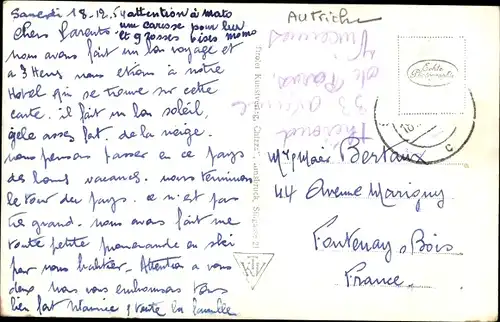 Samedi 18-12-54 attention à mots
Chers Parents une caresse pour lux
et 9 gosses bises momo
nous avons fait un bon voyage et
a 3 Heures nous etions à notre
Hotel qui se trouve sur cette
carte. il fait un bon soleil,
gele asses fort. de la neige.
nous pensons passer en ce pays
de bonnes vacances. nous terminons
le tour du pays. ce n'est pas
tre grand. nous avons fait une
toute petite promenande en ski
par nous habituer. Attention a vous
deux nous vous embrassons tous
bien fort Mannie, & toute la famille
AUTRICHE
Echte
Photographie
33 avenue
Mr & Mme Bertaux
44 Avenue Marigny
Fontenay s Bois
France.
Tiroler Kunstverlag "Chizzali", Innsbruck,